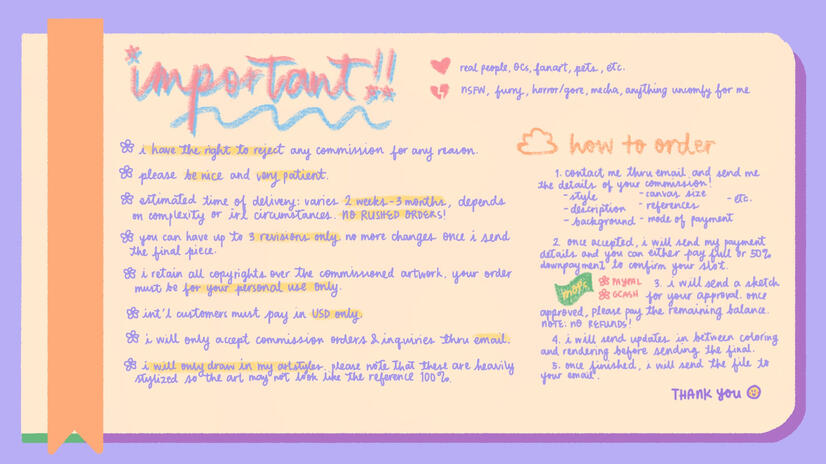 important!!
real people, OCs, fanart, pets, etc.
NSFW, furry, horror/gore, mecha, anything uncomfy for me
i have the right to reject any commission for any reason.
please be nice and very patient.
estimated time of delivery: varies 2 weeks - 3 months, depends
on complexity or irl circumstances. NO RUSHED ORDERS!
you can have up to 3 revisions only. no more changes once i send
the final piece.
i retain all copyrights over the commissioned artwork. your order
must be for your personal use only.
int'l customers must pay in USD only.
i will only accept commission orders & inquiries thru email.
i will only draw in my artstyles. please note that these are heavily
stylized so the art may not look like the reference 100%.
how to order
1. contact me thru email and send me
the details of your commission!
- style
- description
- background
- canvas size
- references
- mode of payment
- etc.
2. once accepted, i will send my payment
details and you can either pay full or 50%
downpayment to confirm your slot.
MOPs
PAYPAL
GCASH
3. i will send a sketch
for your approval. once
approved, please pay the remaining balance.
NOTE: NO REFUNDS!
4. i will send updates in between coloring
and rendering before sending the final.
5. once finished, i will send the file to
your email.
THANK YOU